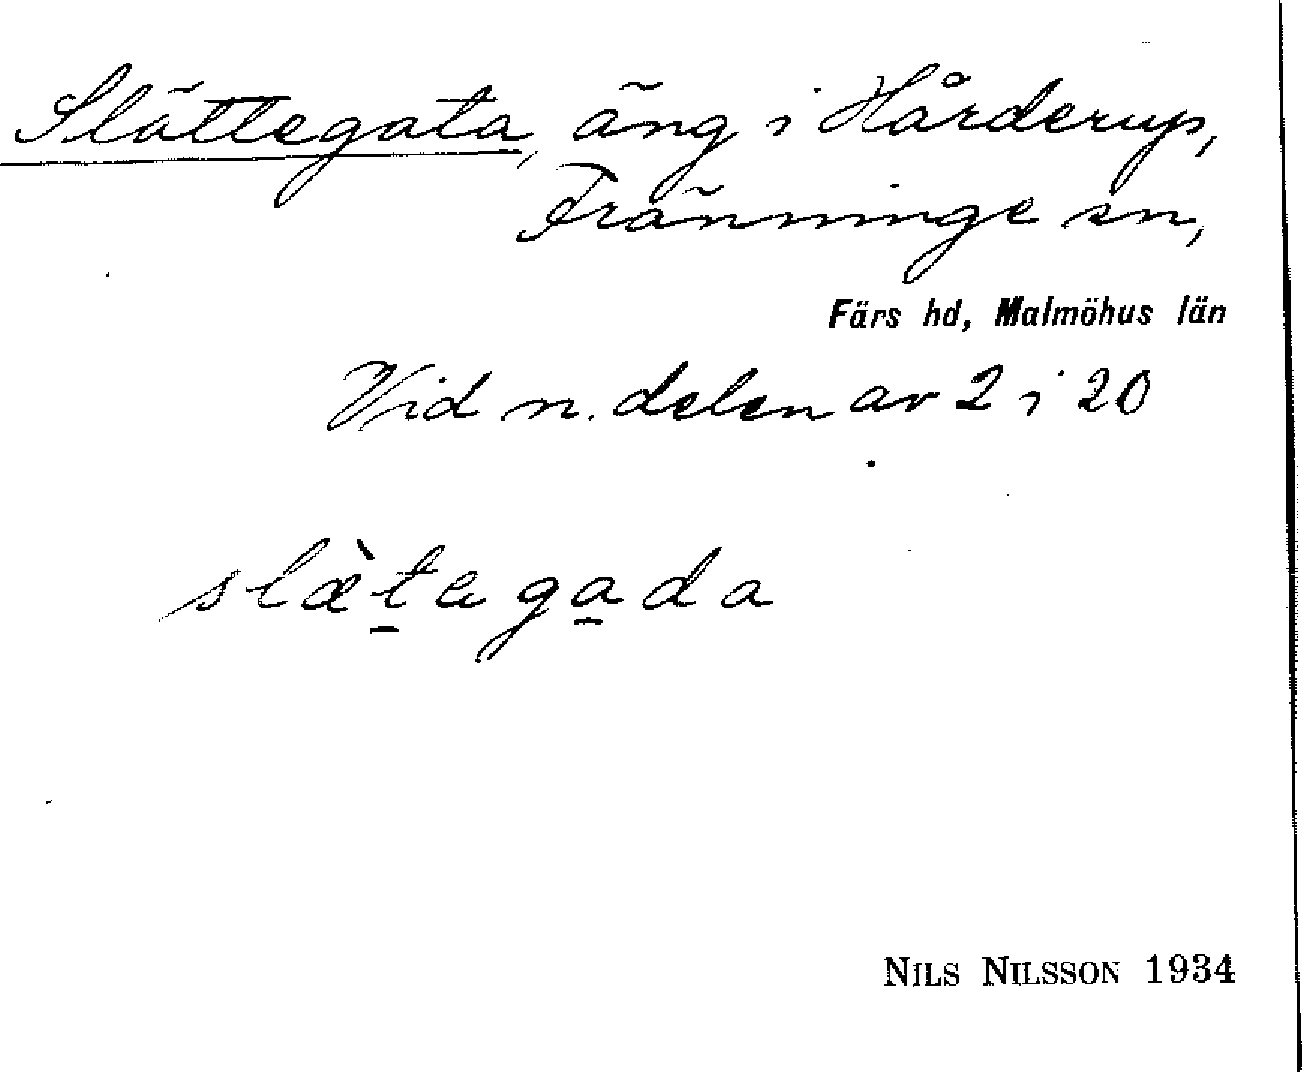 Slättegata, äng i Hårderup,
Fränninge sn,
Färs hd, Malmöhus län
Vid n. delen av 2 i 20
slæ̀t̠ega̠da
NILS NILSSON 1934